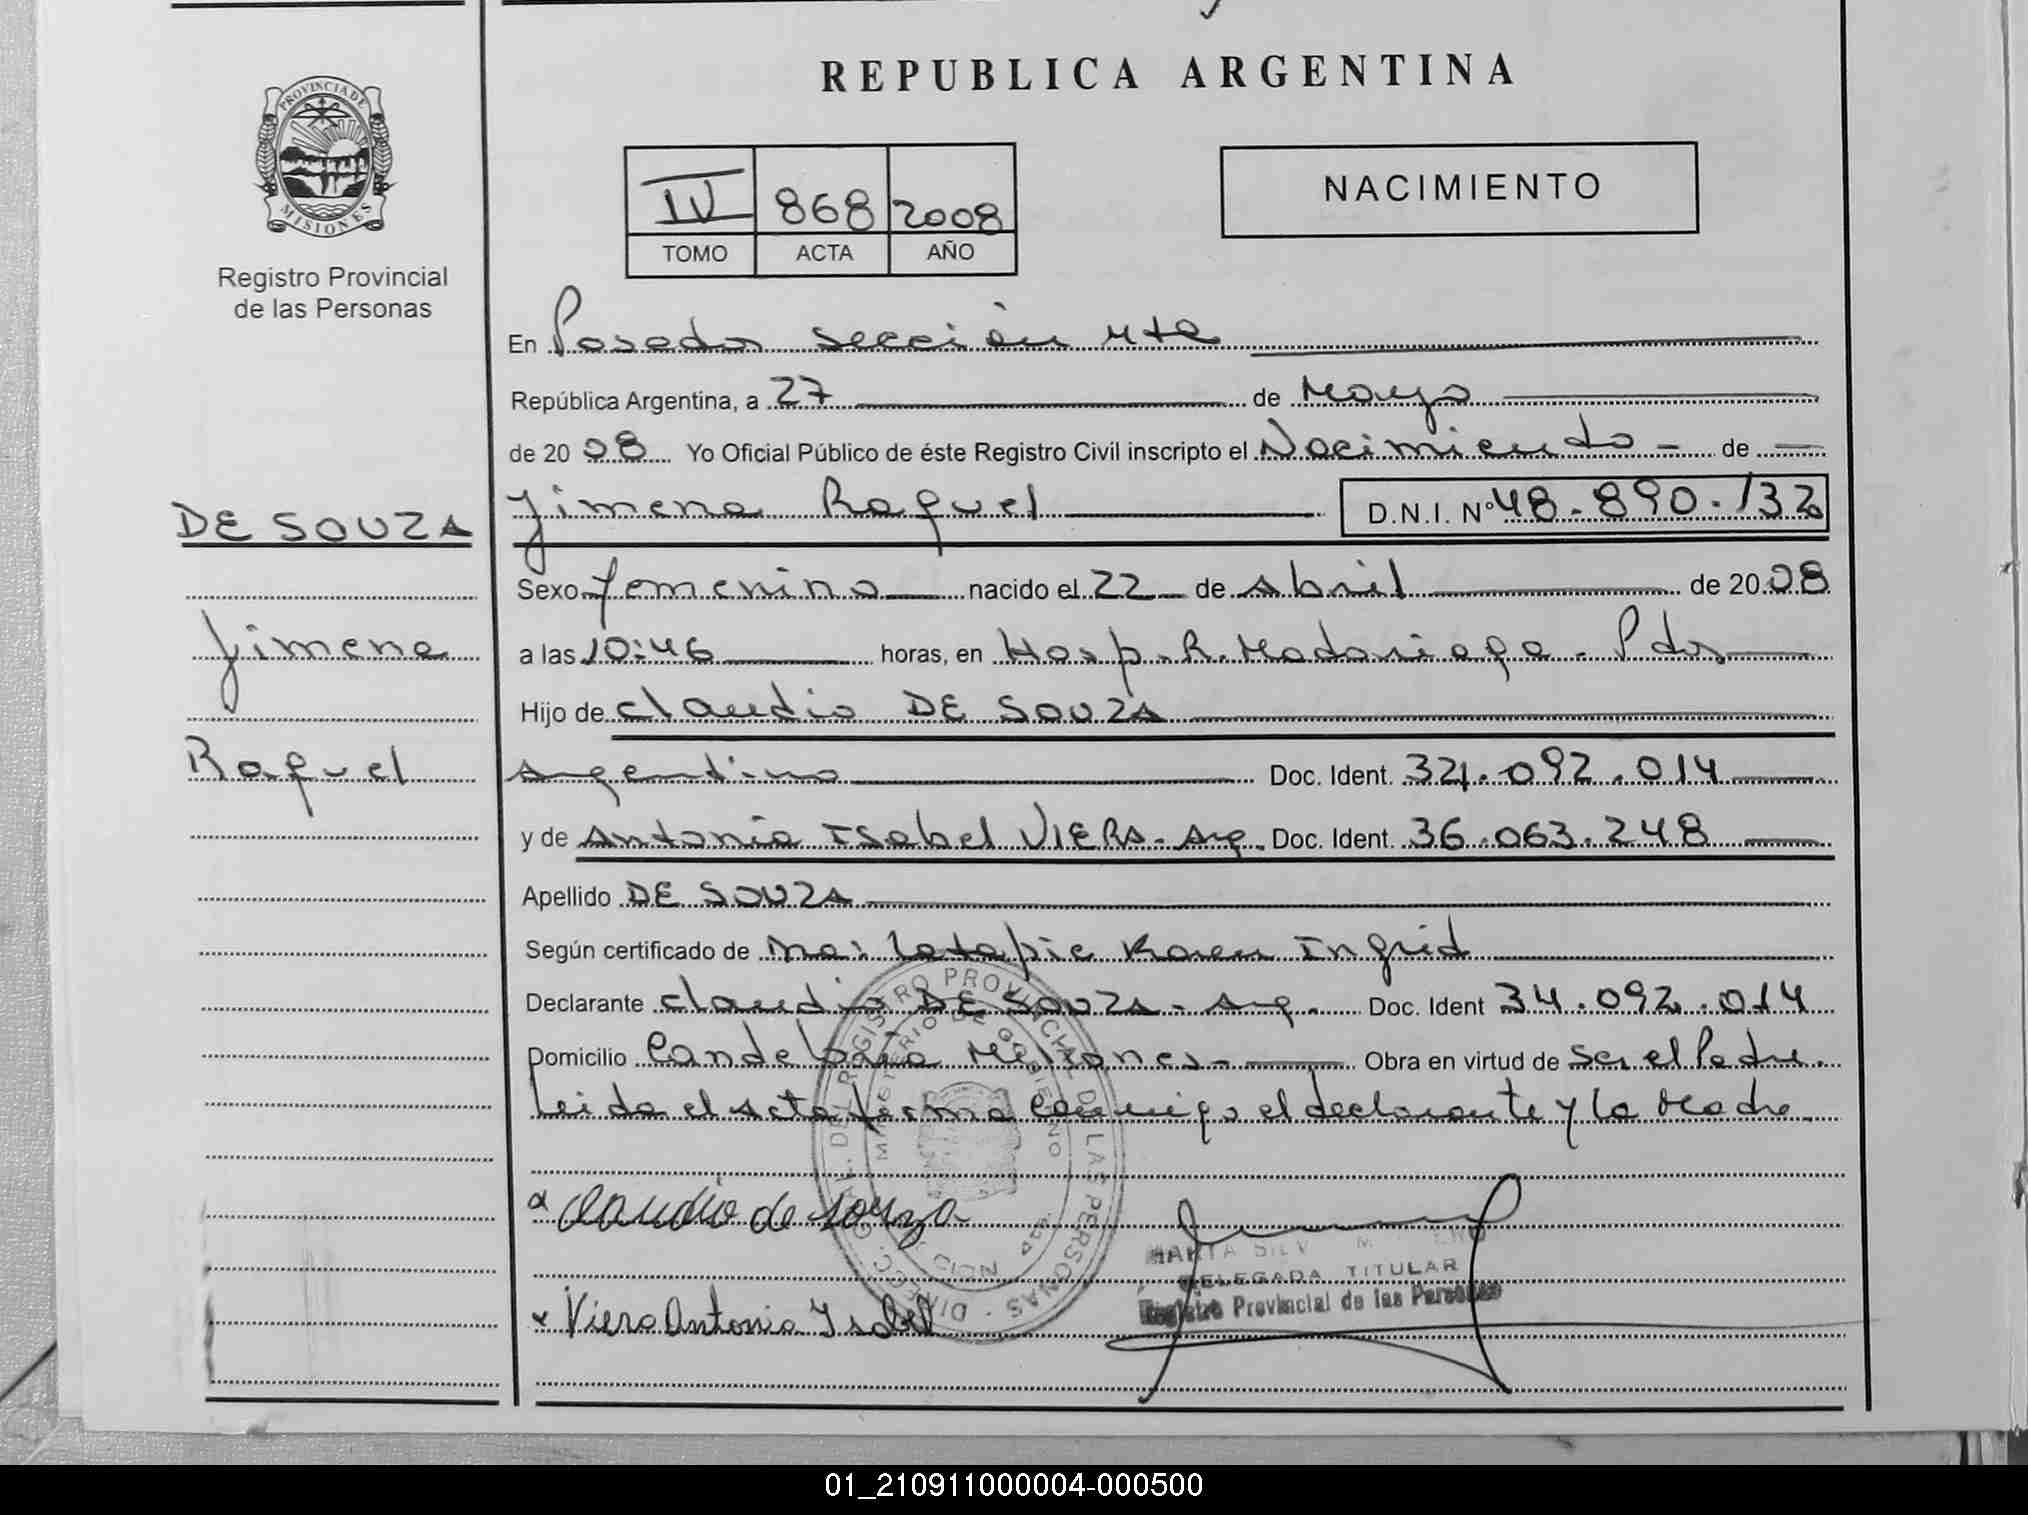 REPUBLICA ARGENTINA
PROVINCIA DE
MISIONES
Registro Provincial
de las Personas
IV 868 2008
TOMO ACTA AÑO
NACIMIENTO
En Posadas sección 4ta
República Argentina, a 27 de Mayo
de 2008 Yo Oficial Público de éste Registro Civil inscripto el Nacimiento - de
DE SOUZA
Jimena Raquel D.N.I. Nº 48.890.132
Sexo femenino nacido el 22 de Abril de 2008
Jimena
a las 10:46 horas, en Hosp. R. Madariaga - Pdas
Hijo de Claudio DE SOUZA
Raquel
Argentino Doc. Ident. 34.092.014
y de Antonia Isabel VIERA - Arg. Doc. Ident. 36.063.248
Apellido DE SOUZA
Según certificado de Karen Ingrid
Declarante Claudio DE SOUZA - Arg. Doc. Ident 34.092.014
Domicilio Candelaria Misiones - Obra en virtud de ser el Padre.
Leida el Acta firma conmigo el declarante y la Madre.
DIRECC. GRAL. DEL REGISTRO PROVINCIAL DE LAS PERSONAS
MINISTERIO DE GOBIERNO
Claudio de Souza
DELEGADA TITULAR
Registro Provincial de las Personas
x Viera Antonia Isabel
01_210911000004-000500